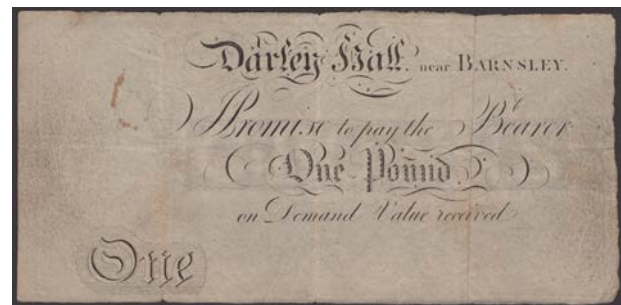 Darley Hall. near BARNSLEY.
I Promise to pay the Bearer
One Pound
on Demand Value received
One